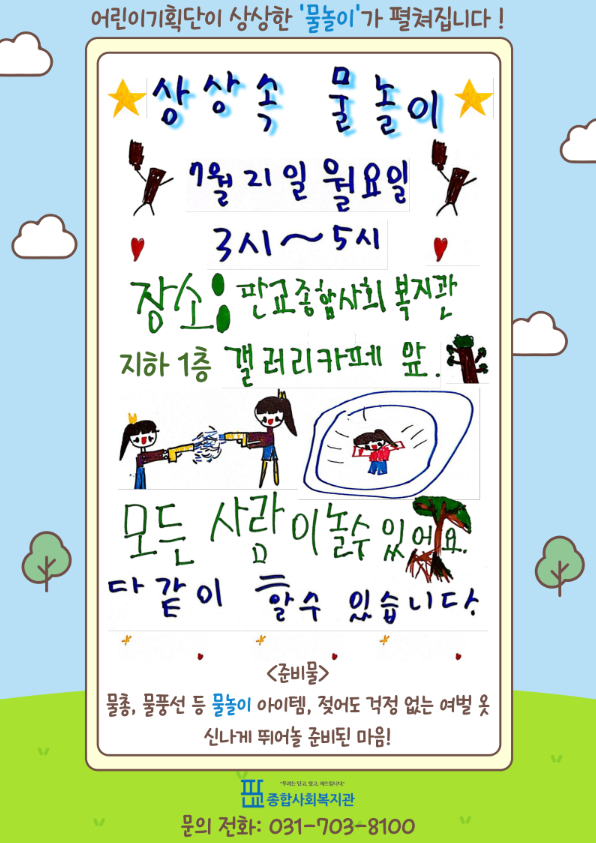 어린이기획단이 상상한 '물놀이'가 펼쳐집니다!
상상속 물놀이
7월 21일 월요일
3시~5시
장소: 판교종합사회복지관
지하 1층 갤러리카페 앞.
모든 사람이 놀수 있어요.
다같이 할수 있습니다!
<준비물>
물총, 물풍선 등 물놀이 아이템, 젖어도 걱정 없는 여벌 옷
신나게 뛰어놀 준비된 마음!
판교종합사회복지관
문의 전화: 031-703-8100